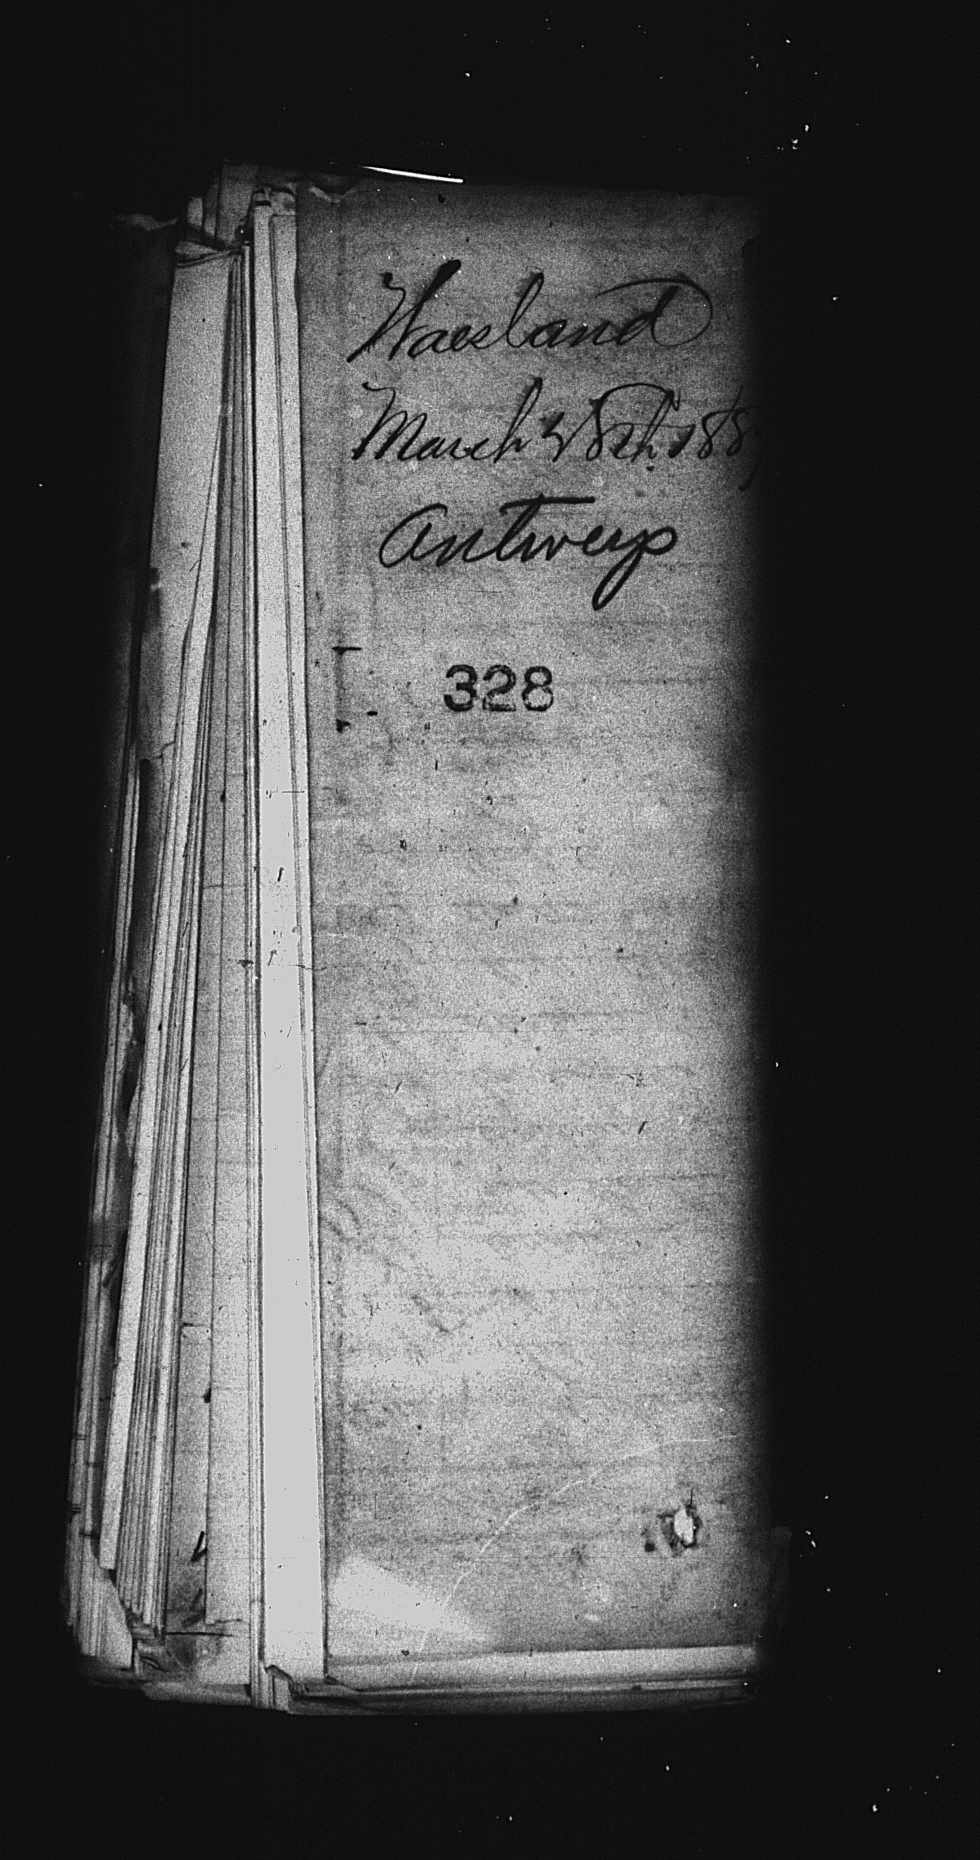 Waesland
March 28th. 188
Antwerp
328